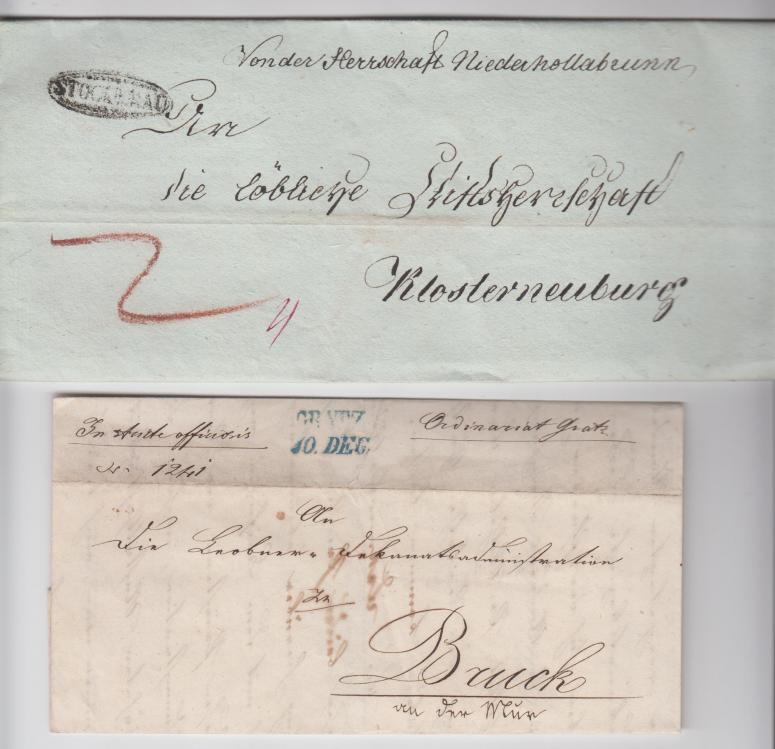 Von der Herrschaft Niederhollabrunn
STOCKERAU
An
die löbliche Stiftsherrschaft
Klosterneuburg
4
GRATZ
10. DEC.
In officiosis
Ordinariat Gratz
N. 1241
An
Die Leobner-Dekanatsadministration
zu
Bruck
an der Mur